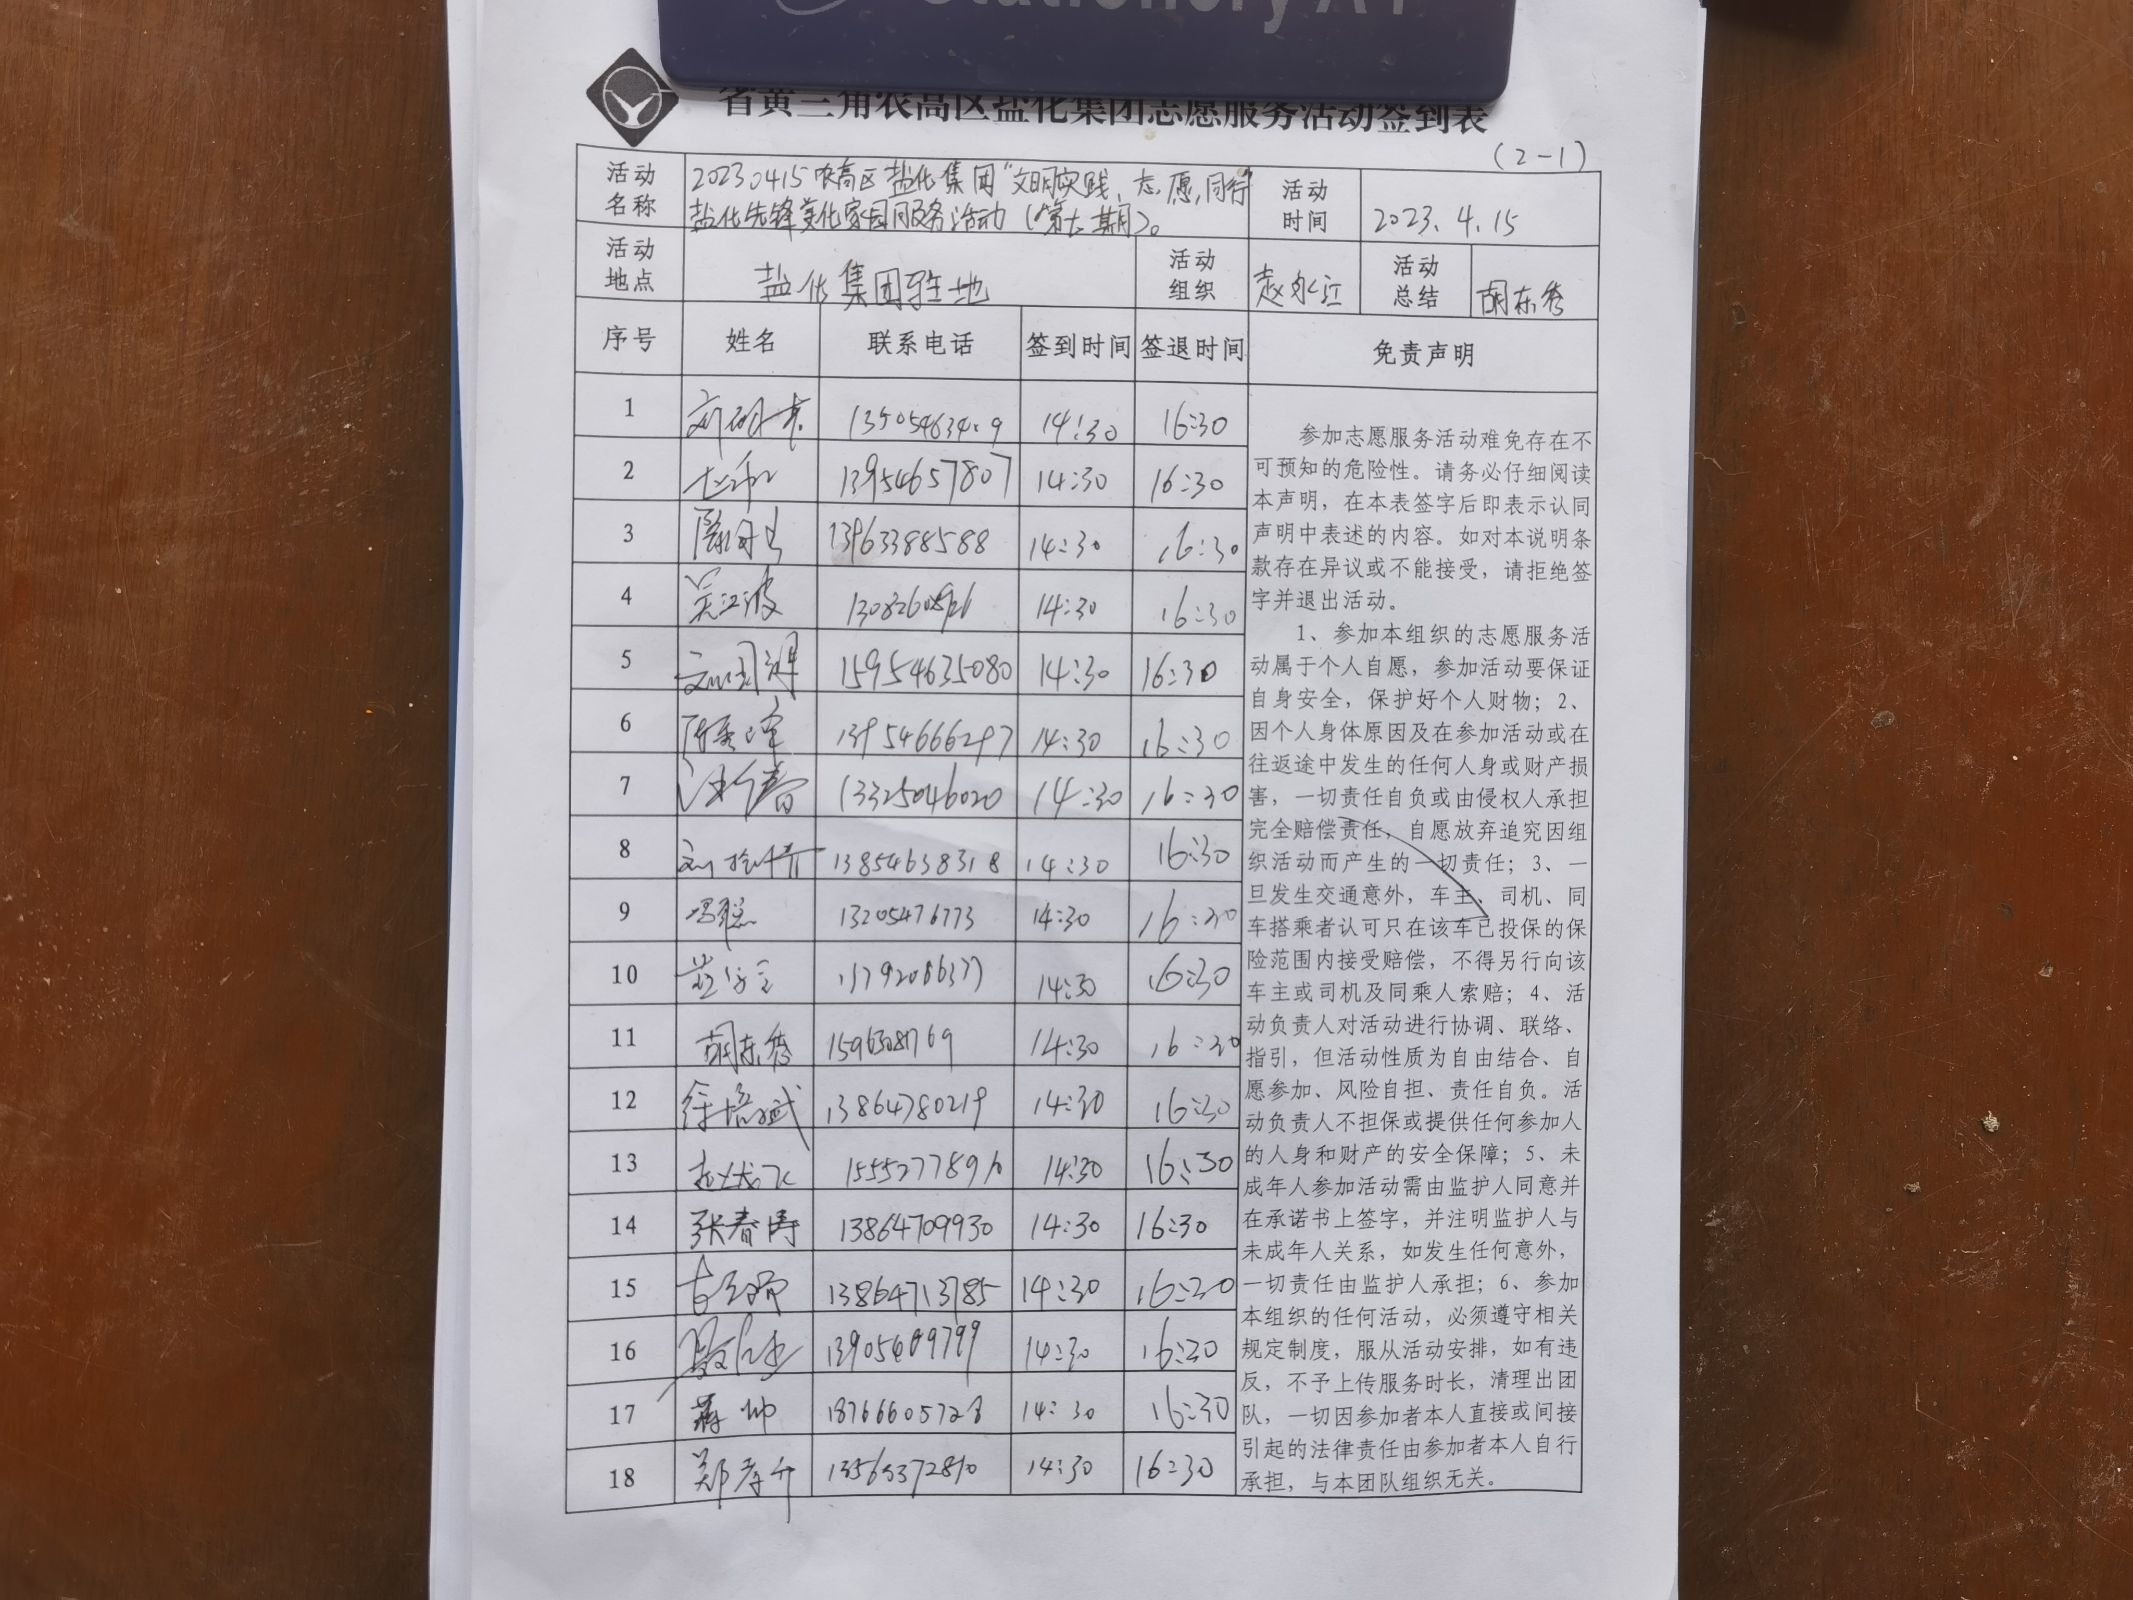 Stationery A4
省黄三角农高区盐化集团志愿服务活动签到表
(2-1)
活动名称
20230415农高区盐化集团"文明实践、志愿同行"
盐化先锋美化家园服务活动(第七期)。
活动时间
2023.4.15
活动地点
盐化集团驻地
活动组织
赵永江
活动总结
胡东秀
序号 姓名 联系电话 签到时间 签退时间 免责声明
1 14:30 16:30
2 13954657807 14:30 16:30
3 13963388588 14:30 16:30
4 吴江波 14:30 16:30
5 15954635080 14:30 16:30
6 13954666297 14:30 16:30
7 13325046020 14:30 16:30
8 13854638318 14:30 16:30
9 冯聪 13205476773 14:30 16:30
10 14:30 16:30
11 胡东秀 14:30 16:30
12 徐培斌 13864780219 14:30 16:30
13 14:30 16:30
14 张春涛 13864709930 14:30 16:30
15 13864713785 14:30 16:30
16 14:30 16:30
17 蒋帅 18766605728 14:30 16:30
18 14:30 16:30
参加志愿服务活动难免存在不
可预知的危险性。请务必仔细阅读
本声明，在本表签字后即表示认同
声明中表述的内容。如对本说明条
款存在异议或不能接受，请拒绝签
字并退出活动。
1、参加本组织的志愿服务活
动属于个人自愿，参加活动要保证
自身安全，保护好个人财物；2、
因个人身体原因及在参加活动或在
往返途中发生的任何人身或财产损
害，一切责任自负或由侵权人承担
完全赔偿责任，自愿放弃追究因组
织活动而产生的一切责任；3、一
旦发生交通意外，车主、司机、同
车搭乘者认可只在该车已投保的保
险范围内接受赔偿，不得另行向该
车主或司机及同乘人索赔；4、活
动负责人对活动进行协调、联络、
指引，但活动性质为自由结合、自
愿参加、风险自担、责任自负。活
动负责人不担保或提供任何参加人
的人身和财产的安全保障；5、未
成年人参加活动需由监护人同意并
在承诺书上签字，并注明监护人与
未成年人关系，如发生任何意外，
一切责任由监护人承担；6、参加
本组织的任何活动，必须遵守相关
规定制度，服从活动安排，如有违
反，不予上传服务时长，清理出团
队，一切因参加者本人直接或间接
引起的法律责任由参加者本人自行
承担，与本团队组织无关。